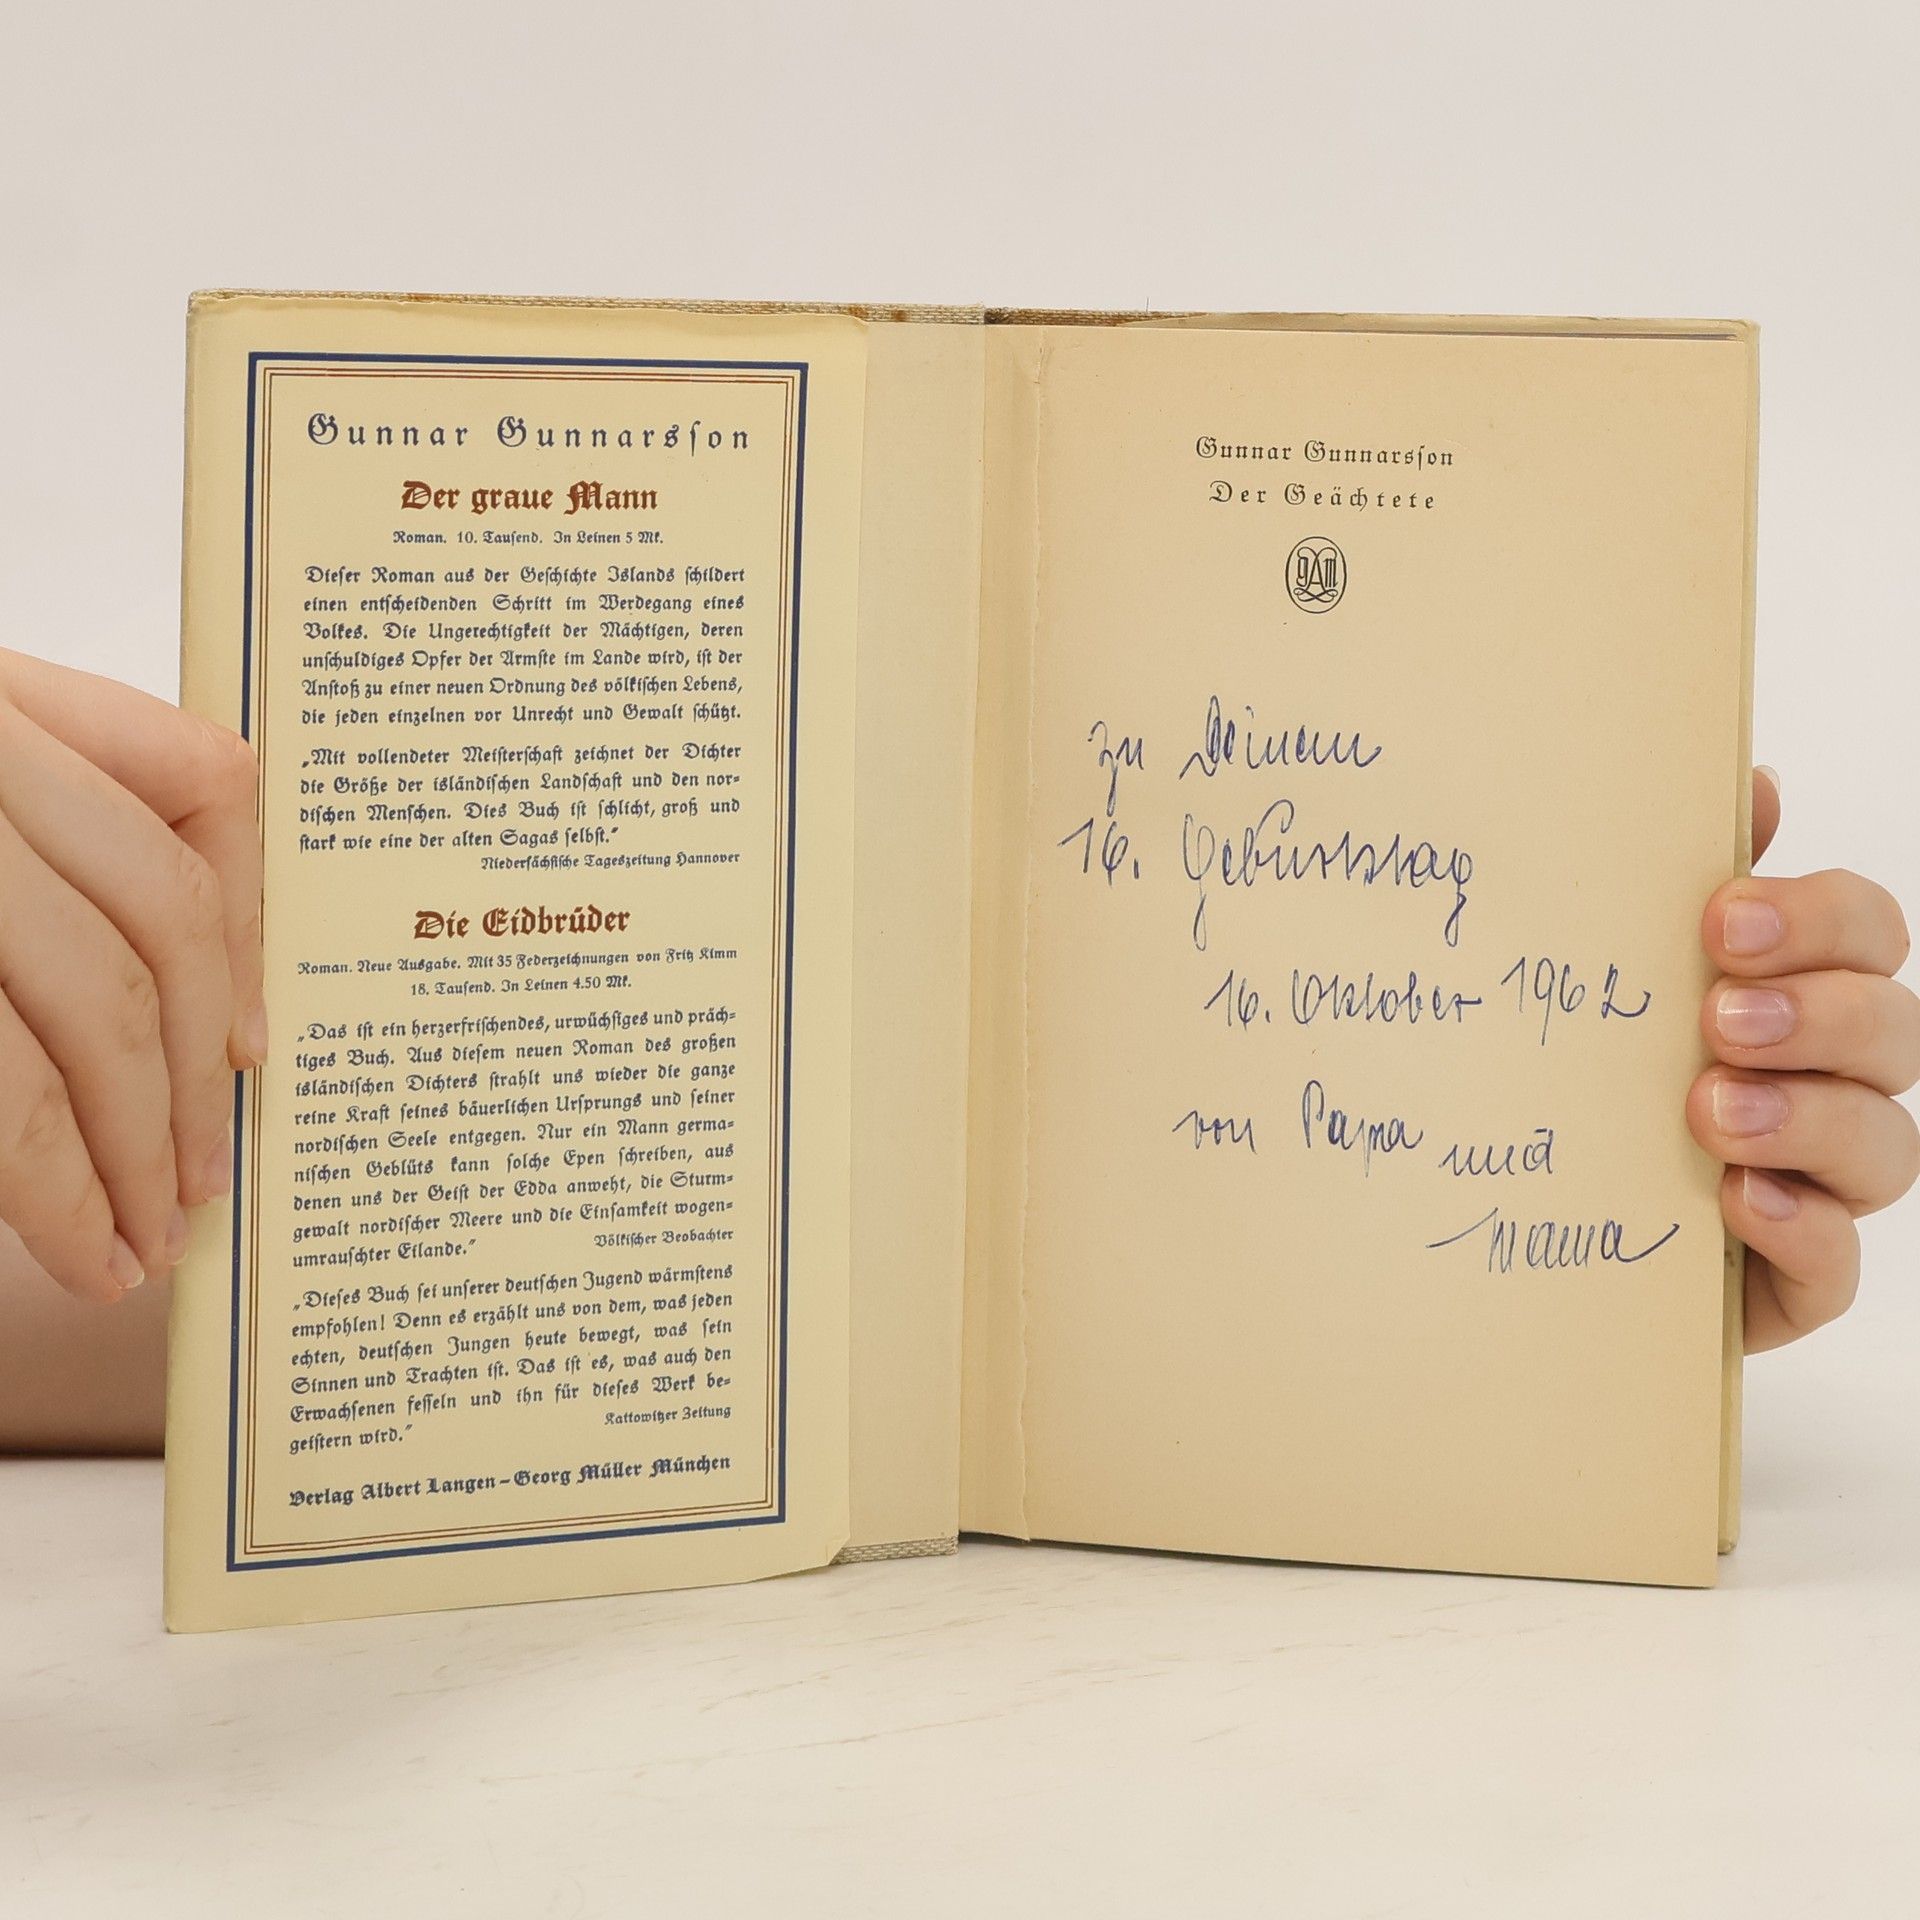 Gunnar Gunnarsson
Der graue Mann
Roman. 10. Tausend. In Leinen 5 Mk.
Dieser Roman aus der Geschichte Islands schildert
einen entscheidenden Schritt im Werdegang eines
Volkes. Die Ungerechtigkeit der Mächtigen, deren
unschuldiges Opfer der Ärmste im Lande wird, ist der
Anstoß zu einer neuen Ordnung des völkischen Lebens,
die jeden einzelnen vor Unrecht und Gewalt schützt.
„Mit vollendeter Meisterschaft zeichnet der Dichter
die Größe der isländischen Landschaft und den nor-
dischen Menschen. Dies Buch ist schlicht, groß und
stark wie eine der alten Sagas selbst.“
Niedersächsische Tageszeitung Hannover
Die Eidbrüder
Roman. Neue Ausgabe. Mit 35 Federzeichnungen von Fritz Kimm
18. Tausend. In Leinen 4.50 Mk.
„Das ist ein herzerfrischendes, urwüchsiges und präch-
tiges Buch. Aus diesem neuen Roman des großen
isländischen Dichters strahlt uns wieder die ganze
reine Kraft seines bäuerlichen Ursprungs und seiner
nordischen Seele entgegen. Nur ein Mann germa-
nischen Geblüts kann solche Epen schreiben, aus
denen uns der Geist der Edda anweht, die Sturm-
gewalt nordischer Meere und die Einsamkeit wogen-
umrauschter Eilande.“ Völkischer Beobachter
„Dieses Buch sei unserer deutschen Jugend wärmstens
empfohlen! Denn es erzählt uns von dem, was jeden
echten, deutschen Jungen heute bewegt, was sein
Sinnen und Trachten ist. Das ist es, was auch den
Erwachsenen fesseln und ihn für dieses Werk be-
geistern wird.“ Kattowitzer Zeitung
Verlag Albert Langen – Georg Müller München
Gunnar Gunnarsson
Der Geächtete
zu Deinem
16. Geburtstag
16. Oktober 1962
von Papa und
Mama